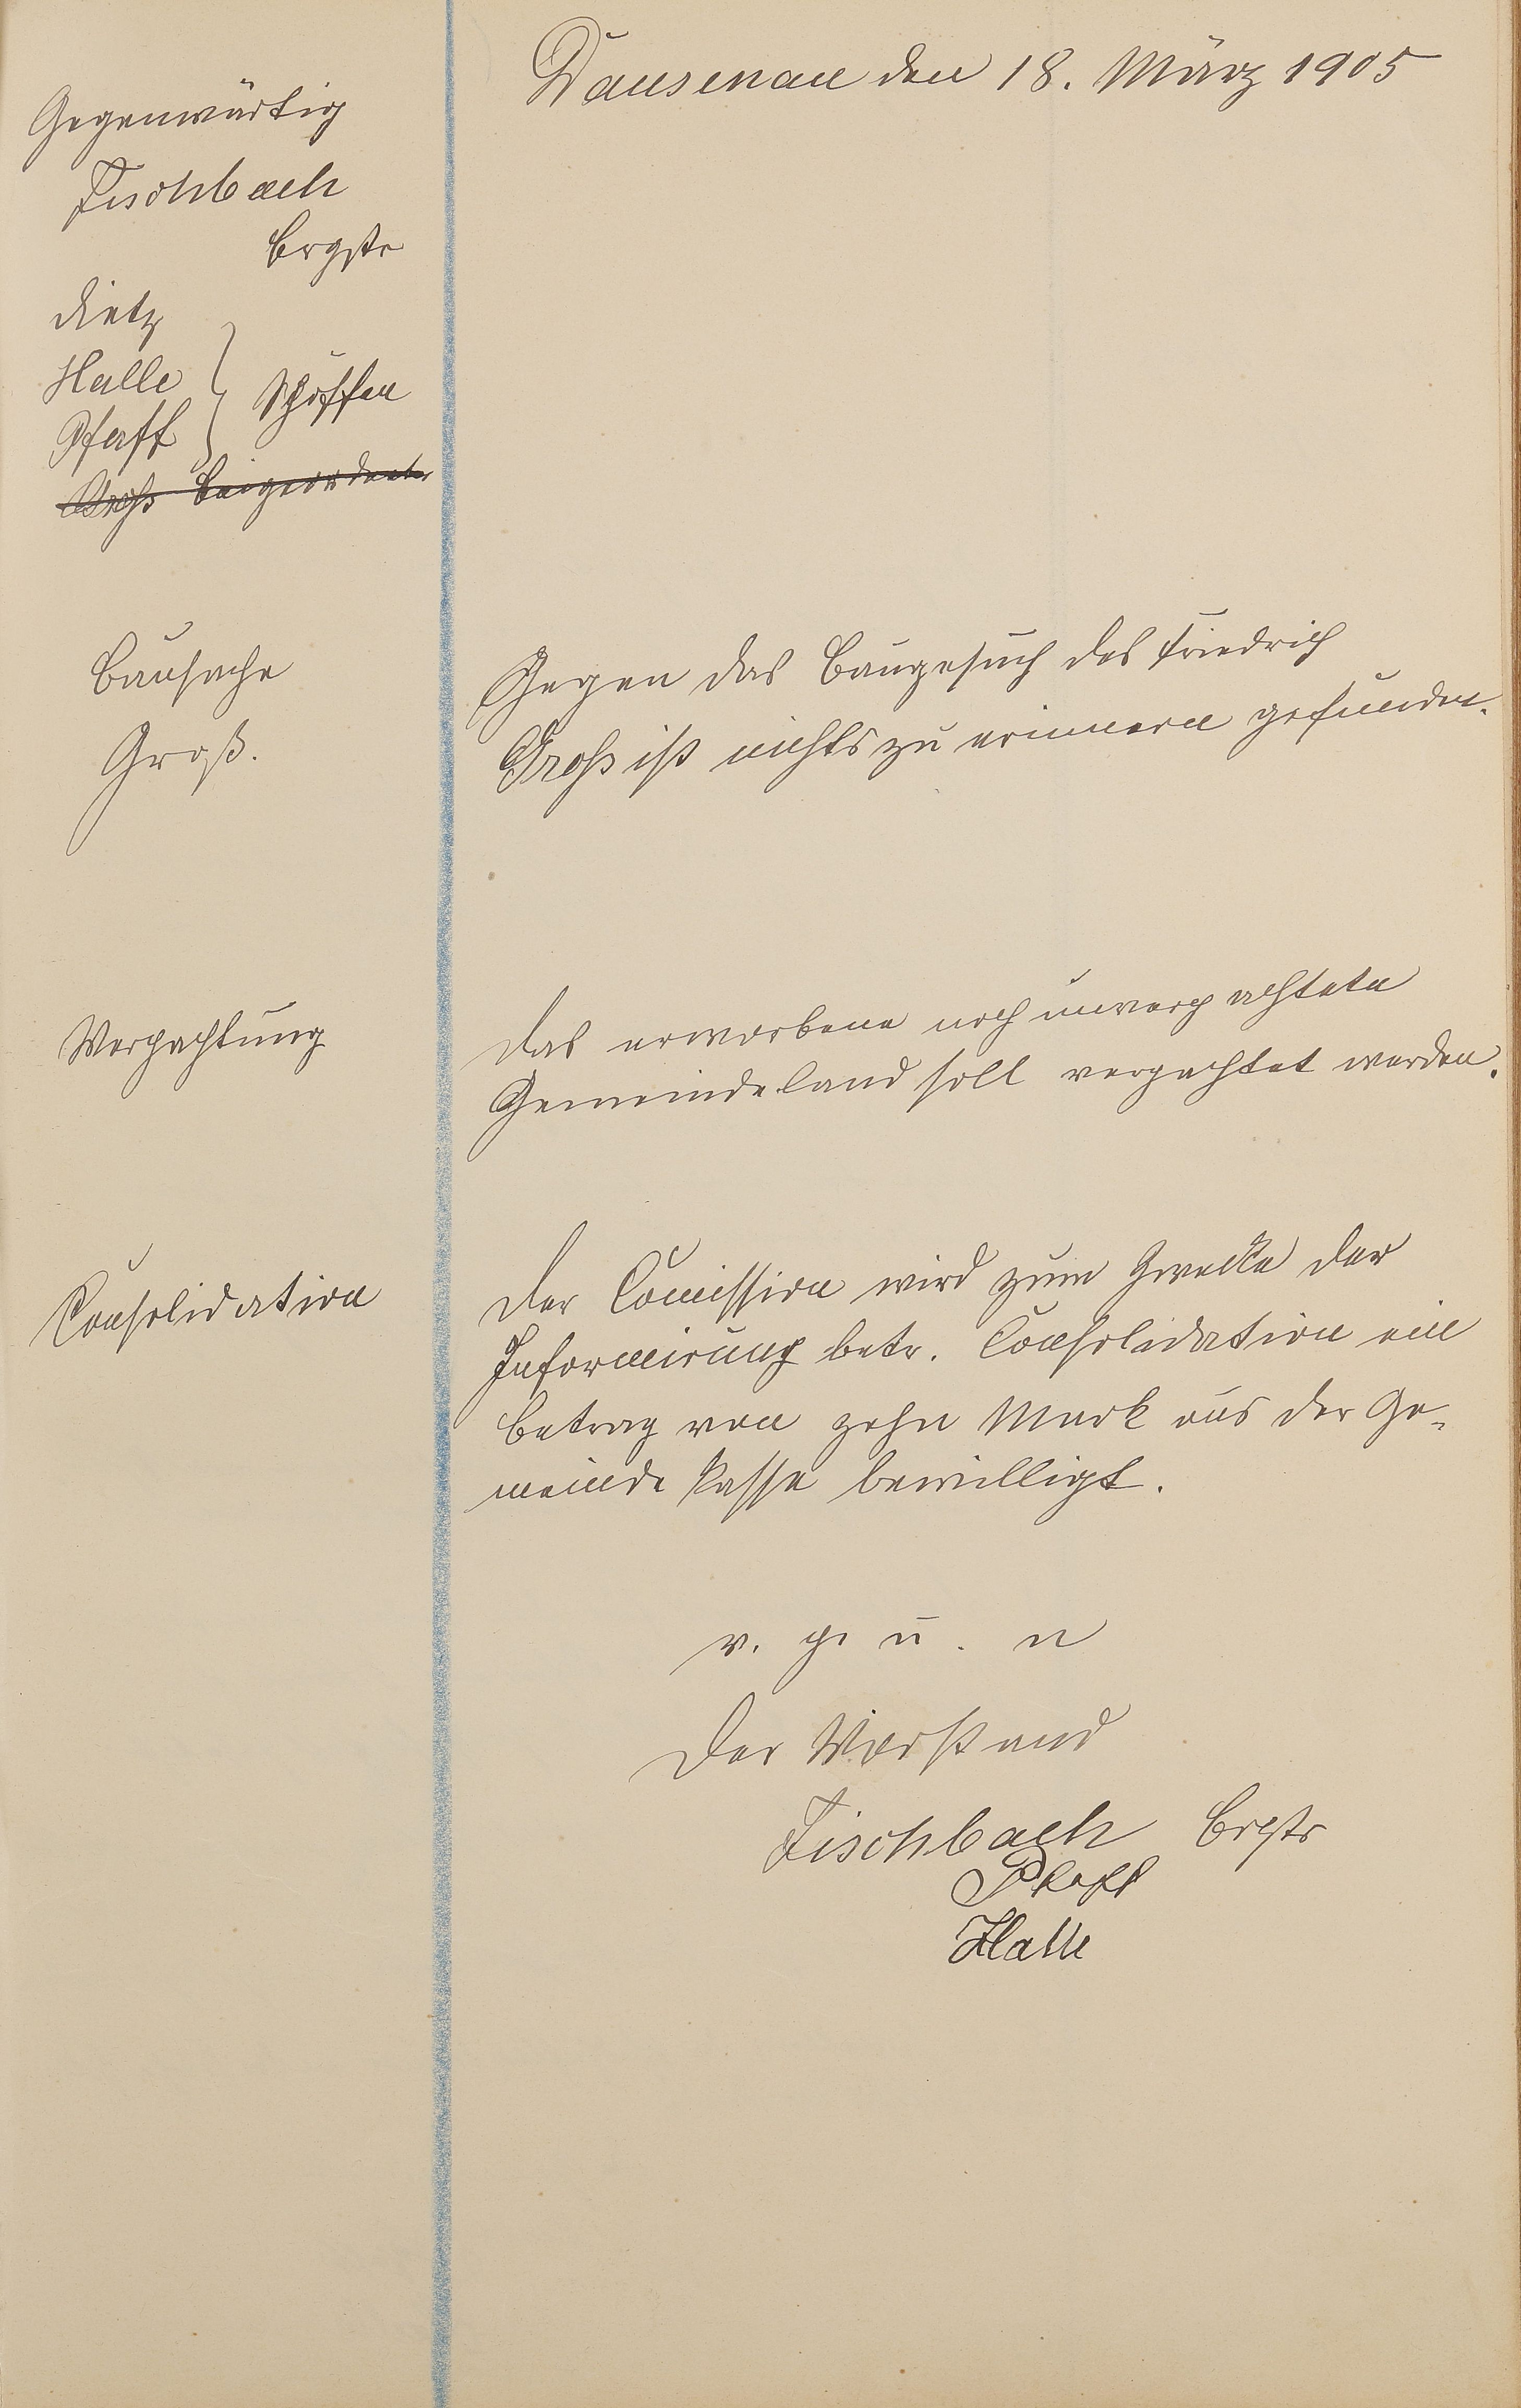 Dausenau den 18. März 1905
Gegenwärtig
Fischbach
Brgstr
Dietz
Halle
Schöffen
Pfaff
Groß Beigeordneter
Bausache
Groß.
Gegen das Baugesuch des Friedrich
Groß ist nichts zu erinnern gefunden.
Verpachtung
Das erworbene noch unverpachtete
Gemeindeland soll verpachtet werden.
Consolidation
Der Comission wird zum Zwecke der
Informirung betr. Consolidation ein
Betrag von zehn Mark aus der Ge-
meinde Kasse bewilligt.
v. g. u. u
Der Vorstand
Fischbach Brgstr
Pfaff
Halle